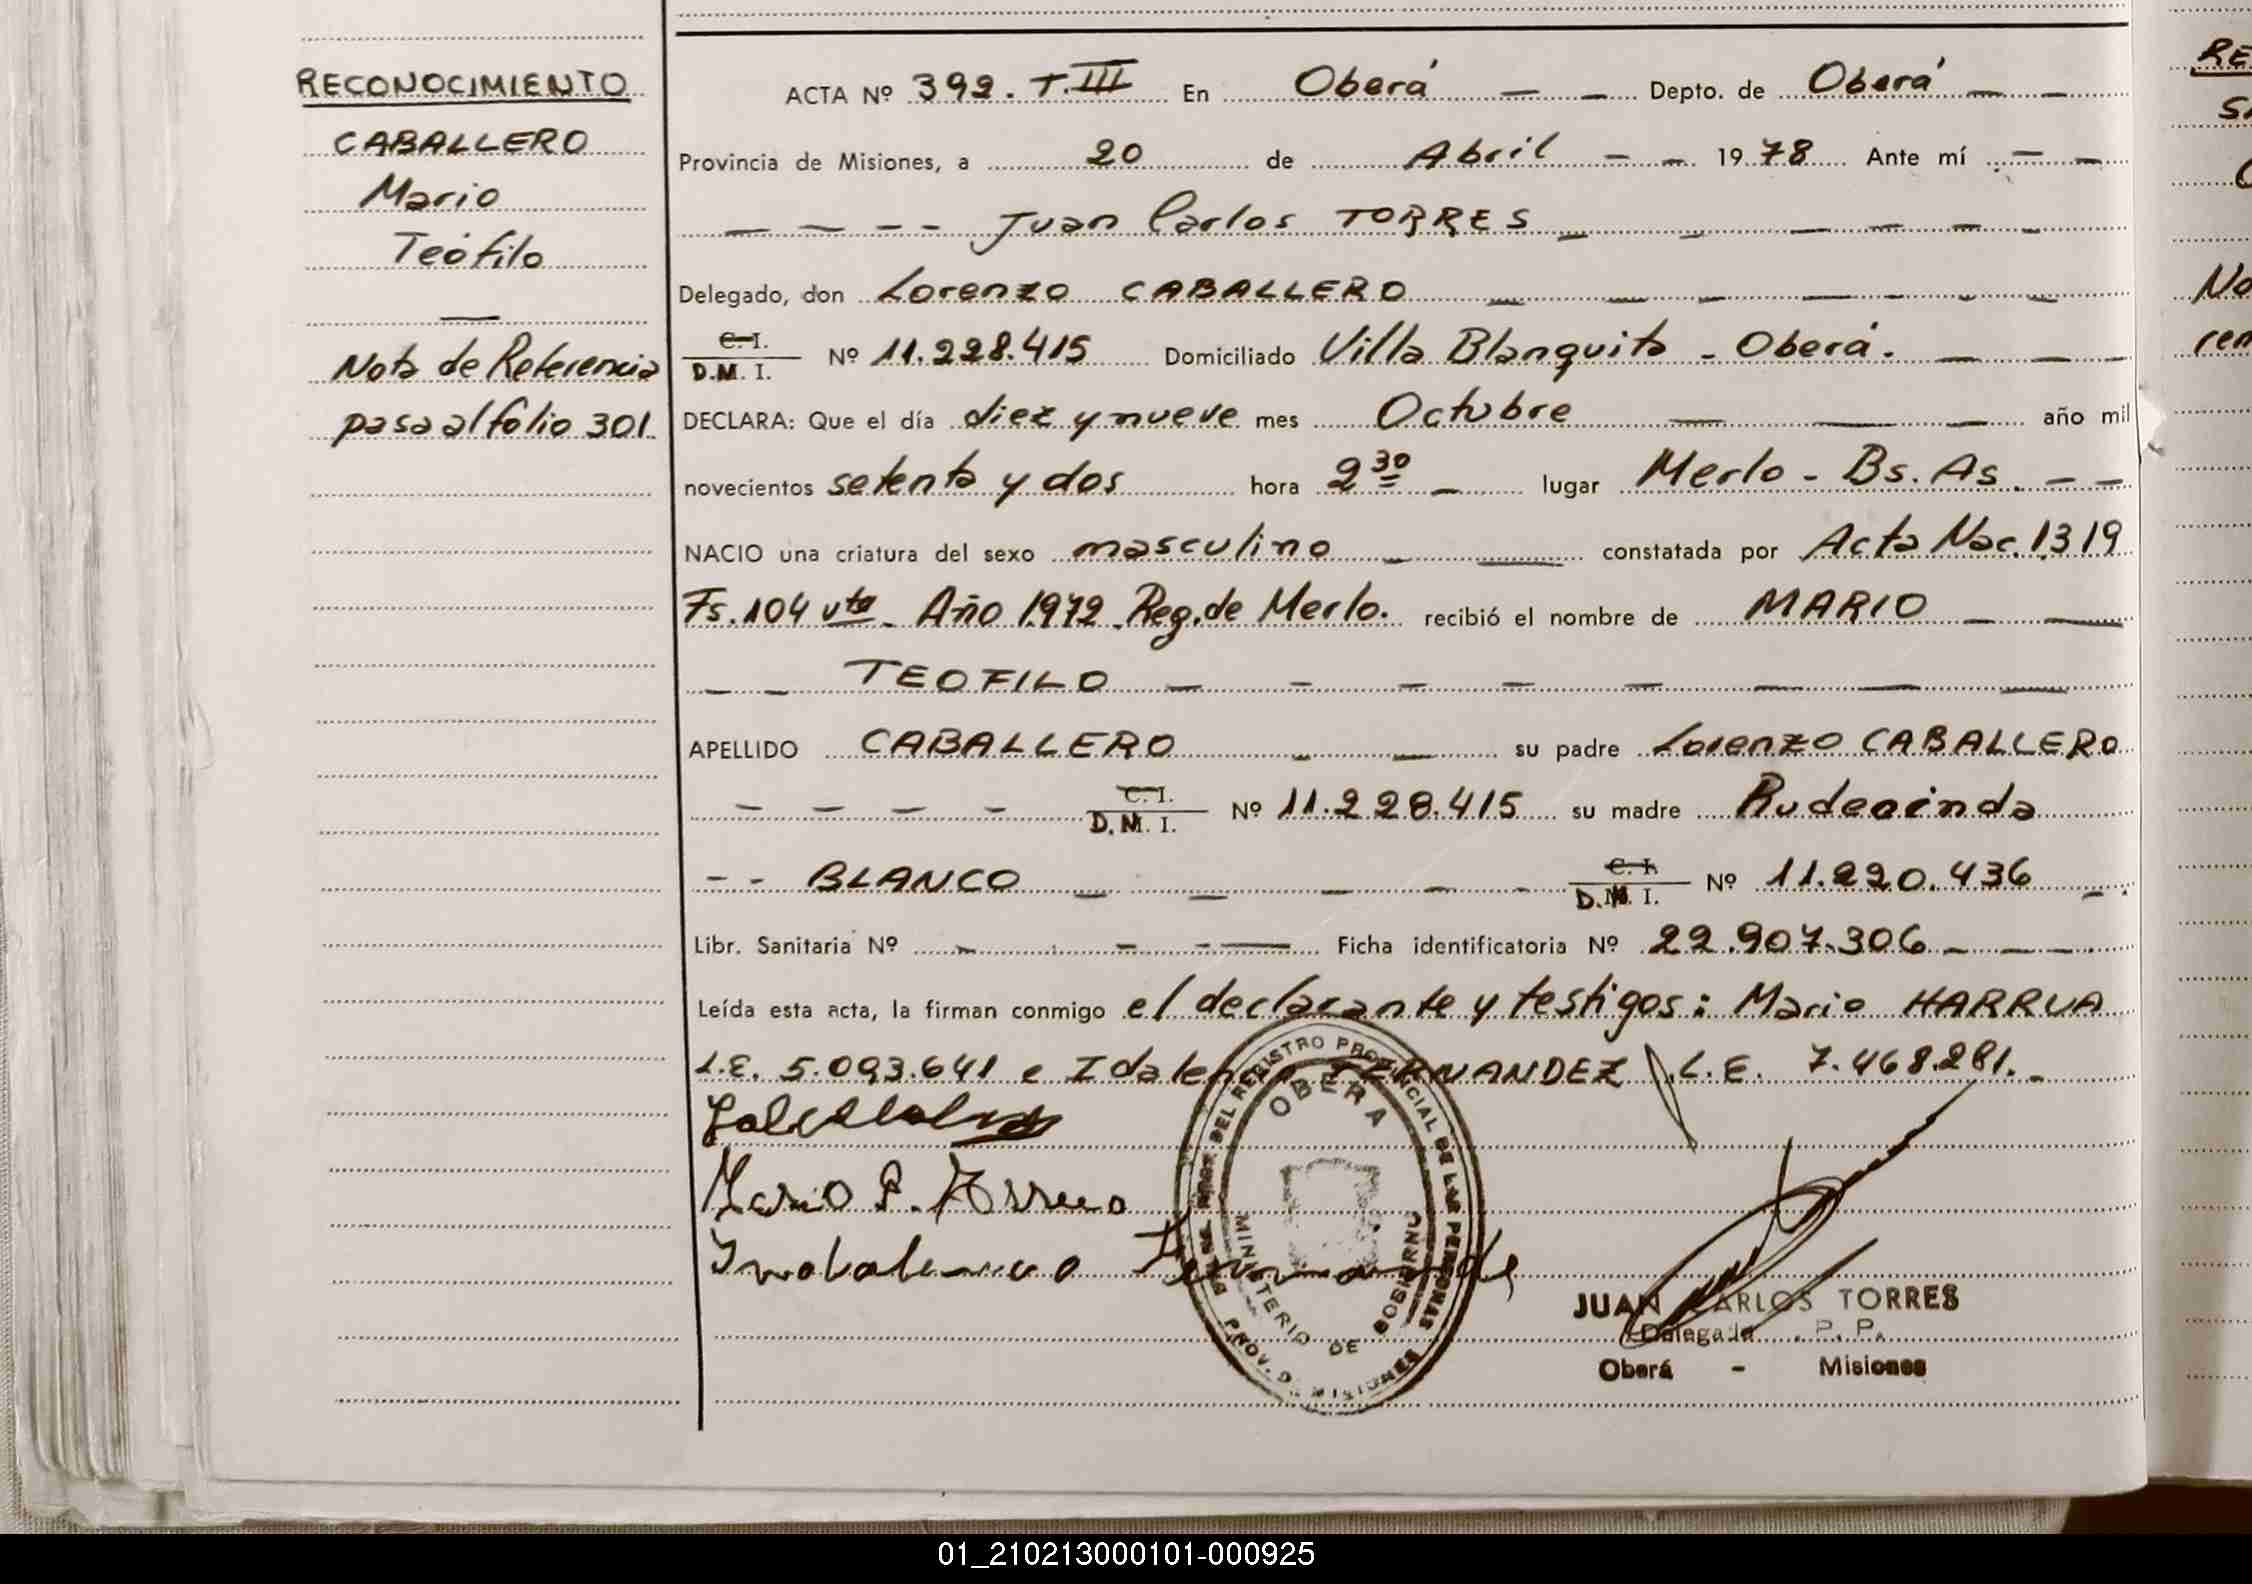 RECONOCIMIENTO
CABALLERO
Mario
Teófilo
Nota de Referencia
pasa al folio 301
ACTA Nº 392. T. III En Oberá Depto. de Oberá
Provincia de Misiones, a 20 de Abril 1978 Ante mí
Juan Carlos TORRES
Delegado, don Lorenzo CABALLERO
C. I.
D.M. I. Nº 11.228.415 Domiciliado Villa Blanquita - Oberá.
DECLARA: Que el día diez y nueve mes Octubre año mil
novecientos setenta y dos hora 2 30 lugar Merlo - Bs. As.
NACIO una criatura del sexo masculino constatada por Acta Nac. 1319
Fs. 104 vta. Año 1972. Reg. de Merlo. recibió el nombre de MARIO
TEOFILO
APELLIDO CABALLERO su padre Lorenzo CABALLERO
C. I.
D.M. I. Nº 11.228.415 su madre Rudecinda
BLANCO C. I.
D.M. I. Nº 11.220.436
Libr. Sanitaria Nº Ficha identificatoria Nº 22.907.306
Leída esta acta, la firman conmigo el declarante y testigos: Mario HARRUA
L.E. 5.093.641 e Idalencio FERNANDEZ L.E. 7.468.281.
Mario P. Arrua
DEL REGISTRO PROVINCIAL DE LAS PERSONAS
OBERA
MINISTERIO DE GOBIERNO
PROV. DE MISIONES
JUAN CARLOS TORRES
Delegado P. P.
Oberá - Misiones
RE
No
ren
01_210213000101-000925